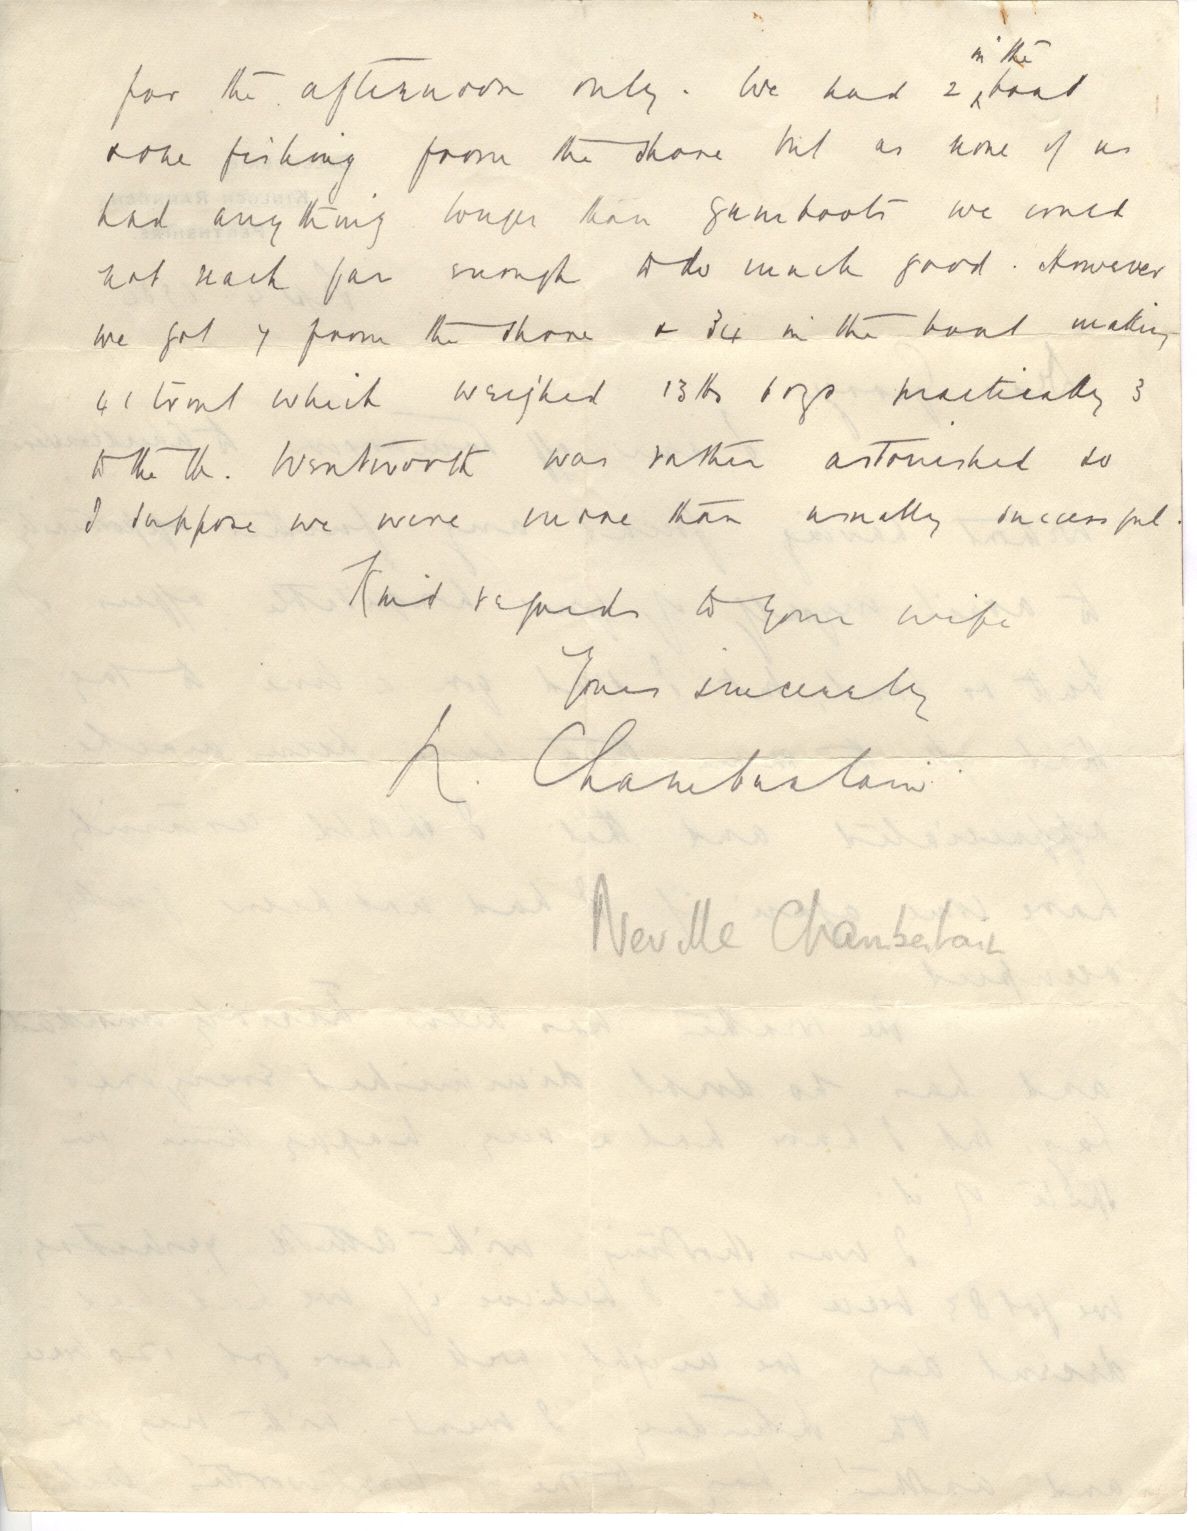 for the afternoon only. We had 2 in the boat
& one fishing from the shore but as none of us
had anything longer than gumboots we could
not reach far enough to do much good. However
we got 7 from the shore & 34 in the boat making
41 trout which weighed 13 lbs 6 ozs practically 3
to the lb. Wentworth was rather astonished so
I suppose we were more than usually successful.
Kind regards to your wife
Yours sincerely
N. Chamberlain.
Neville Chamberlain